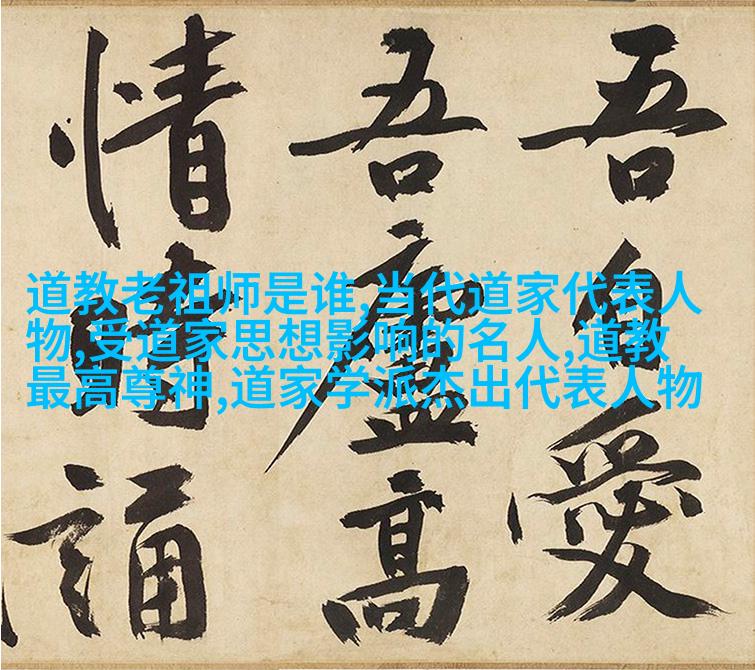 吾自愛
吾廬高
情時誦
道教老祖师是谁,当代道家代表人
物,受道家思想影响的名人,道教
最高尊神,道家学派杰出代表人物